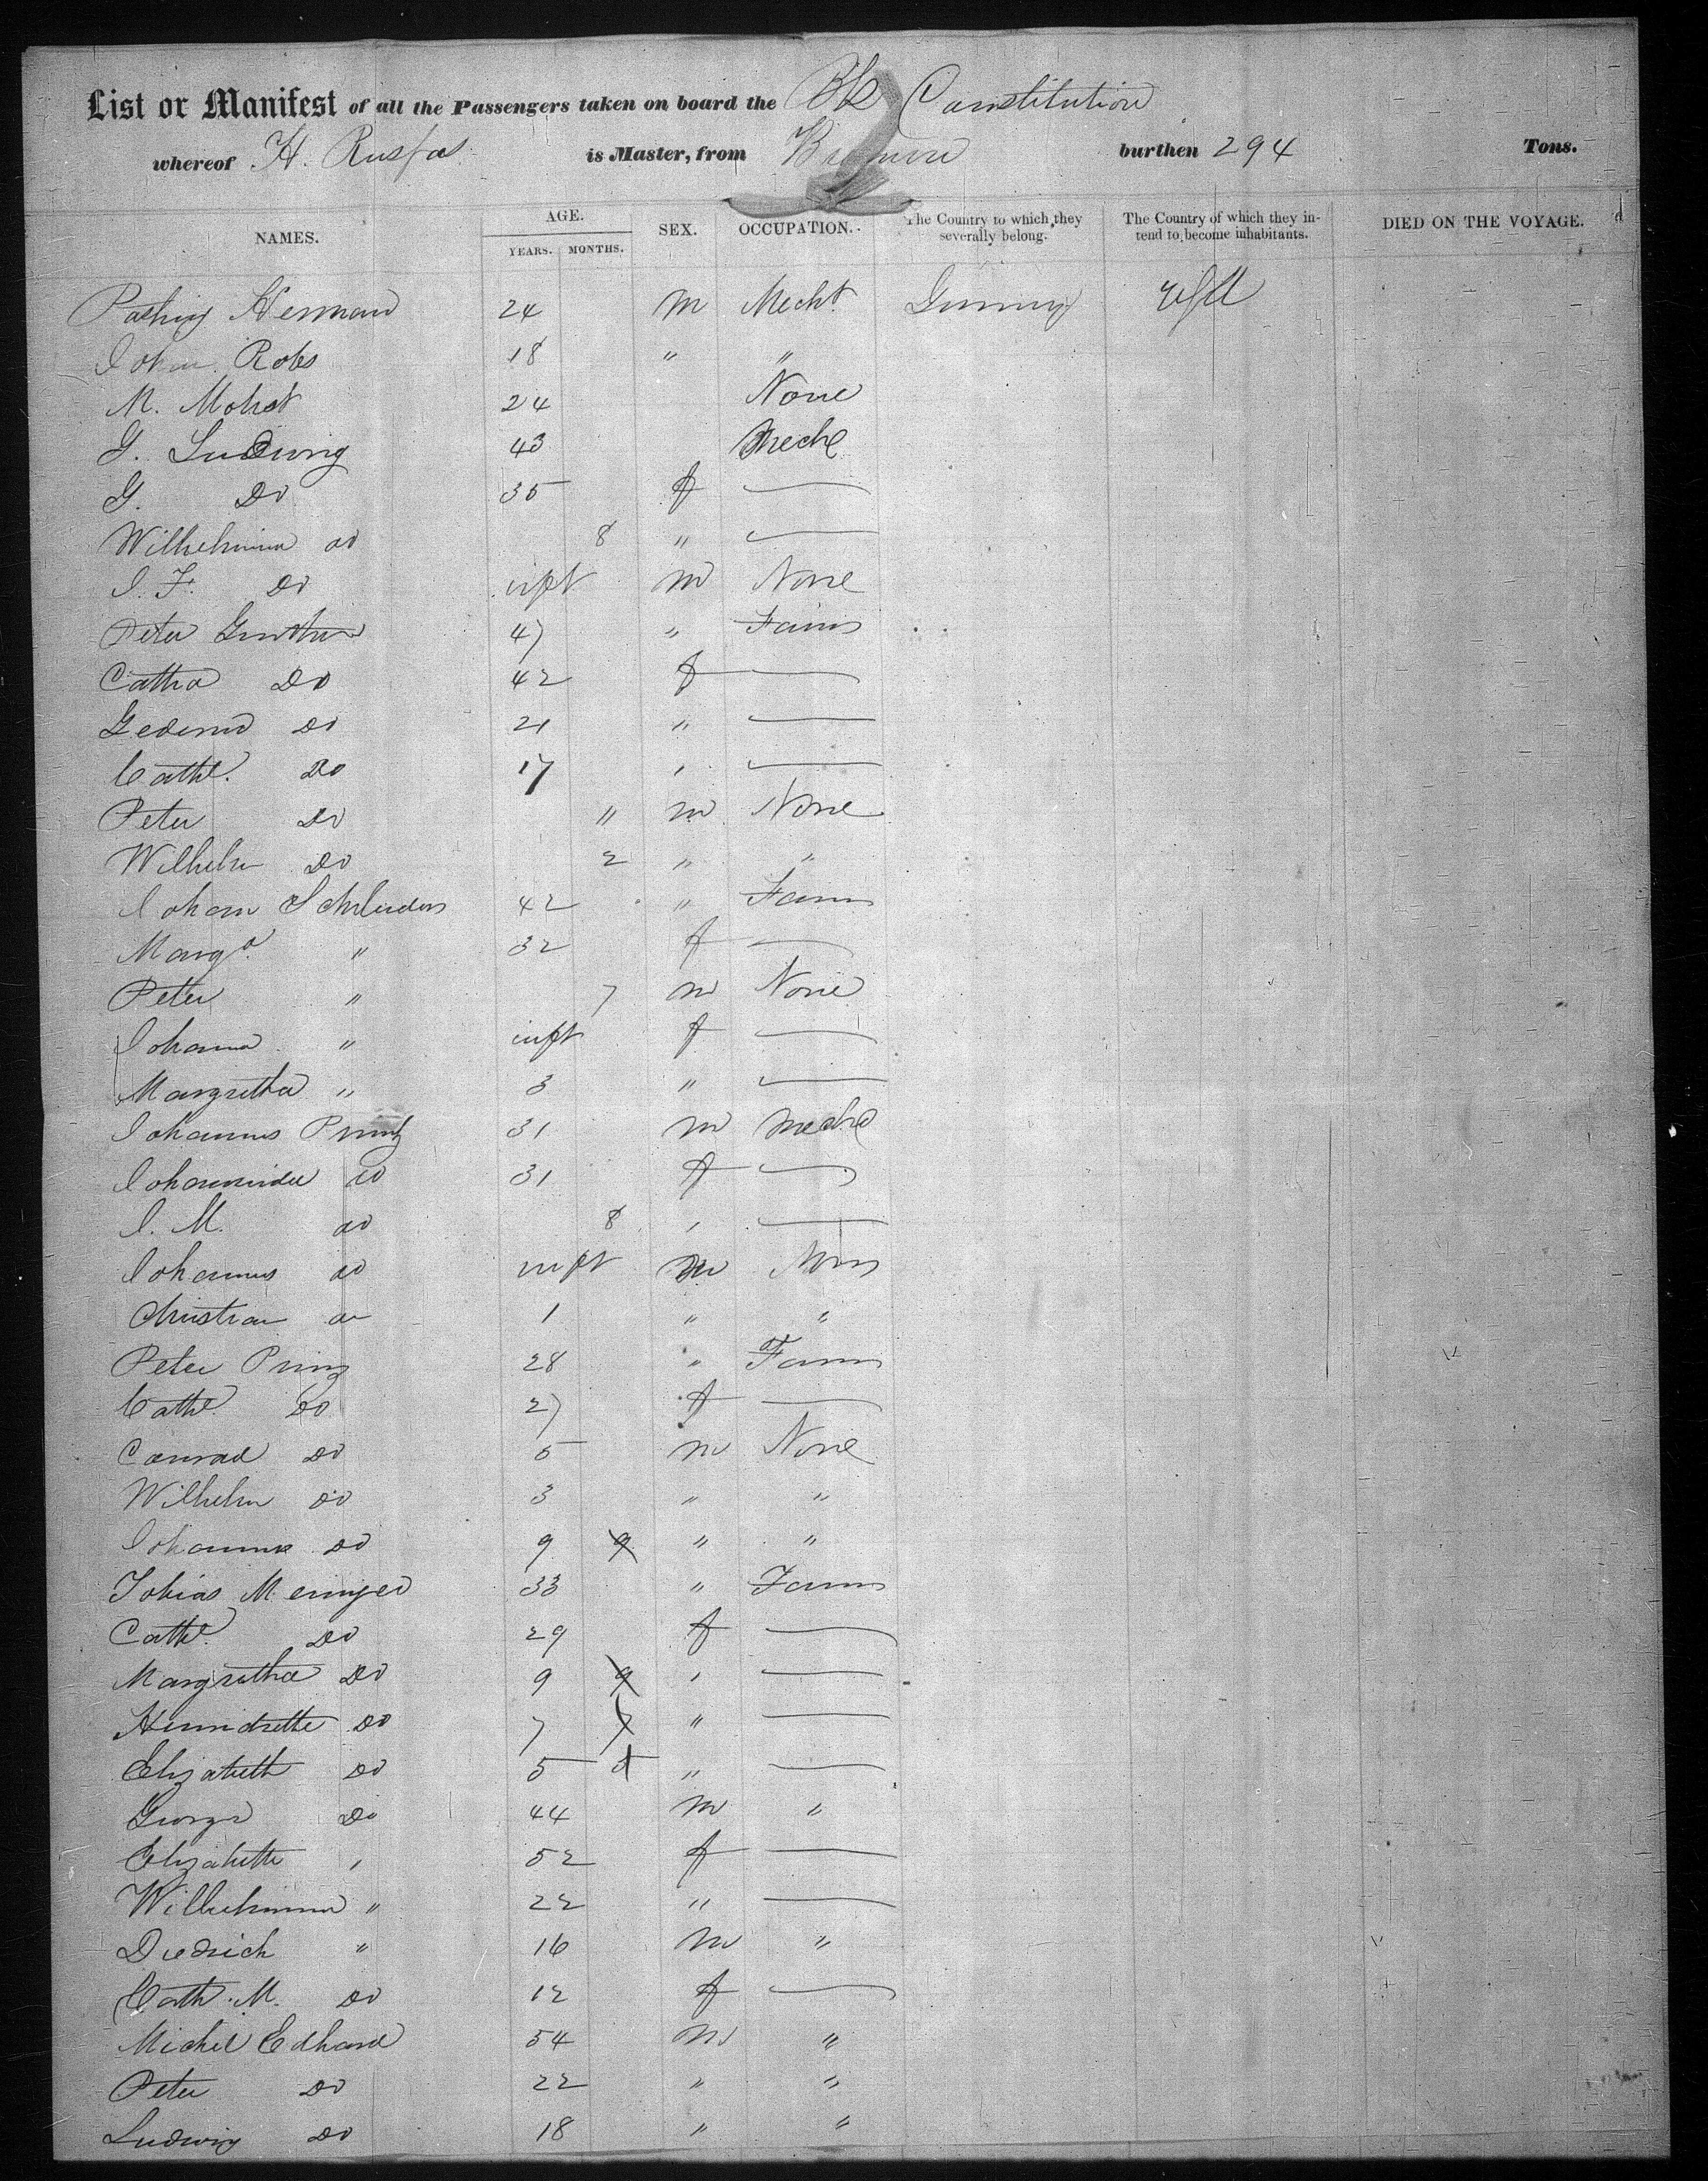 List or Manifest of all the Passengers taken on board the Bk Constitution
whereof H. is Master, from burthen 294 Tons.
NAMES. AGE. YEARS. MONTHS. SEX. OCCUPATION. The Country to which they severally belong. The Country of which they intend to become inhabitants. DIED ON THE VOYAGE.
Herman 24 M Mecht. Germany
Robs 18 " "
M. 24 None
G. Ludwig 43 Mech
G. Do 35 f —
Wilhelmina do 8 " —
I. F. Do inft m None
Peter 47 " Farm
Catha Do 42 f —
Do 21 " —
Cathe. Do 17 " —
Peter Do " m None
Wilhelm Do 2 " "
Johan 42 " Farm
Marga. " 32 f —
Peter " 7 m None
Johanna " inft f —
Margretha " 3 " —
Johannes Printz 31 m Meche
do 31 f —
I. M. do 8 " —
Johannes do inft m None
Christian do 1 " "
Peter Prinz 28 " Farm
Cathe. Do 27 f —
Conrad Do 5 m None
Wilhelm Do 3 " "
Johannes Do 9 9 " "
Tobias 33 " Farm
Cathe. Do 29 f —
Margretha Do 9 9 " —
Do 7 7 " —
Elizabeth Do 5 5 " —
George Do 44 m "
Elizabeth " 52 f —
Wilhelmina " 22 " —
Diedrich " 16 m "
Cath. M. Do 12 f —
Michel Edhard 54 m "
Peter Do 22 " "
Ludwig Do 18 " "